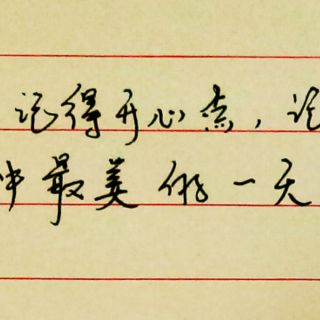 记得开心点，
最美的一天